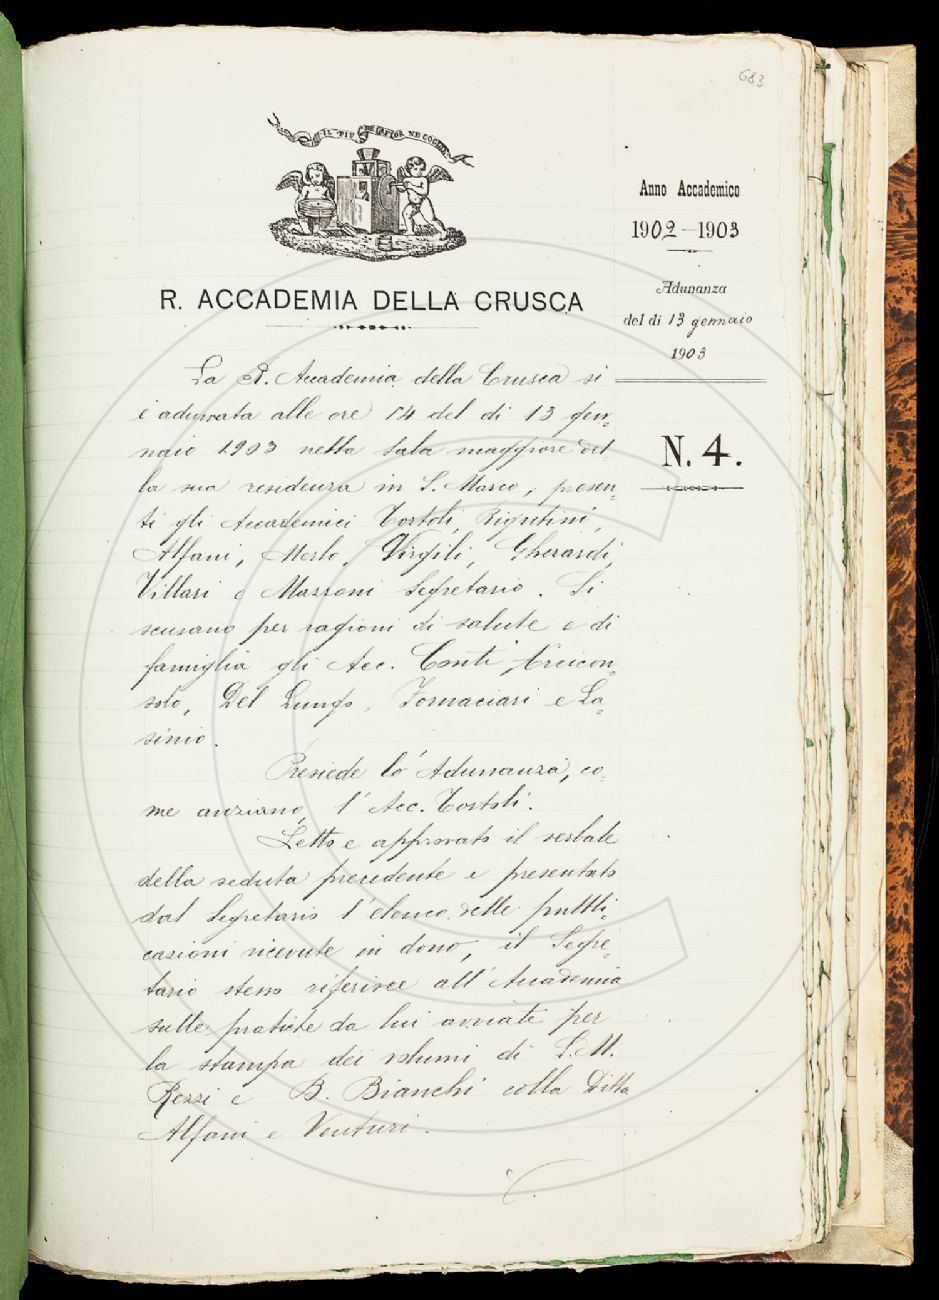 683
IL PIÙ BEL FIOR NE COGLIE
Anno Accademico
1902-1903
Adunanza
del dì 13 gennaio
1903
N. 4.
R. ACCADEMIA DELLA CRUSCA
La R. Accademia della Crusca si
è adunata alle ore 14 del dì 13 gen-
naio 1903 nella sala maggiore del-
la sua residenza in S. Marco, presen-
ti gli Accademici Tortoli, Rigutini,
Alfani, Merlo, Virgili, Gherardi,
Villari e Mazzoni Segretario. Si
scusano per ragioni di salute e di
famiglia gli Acc. Conti Arcicon-
solo, Del Lungo, Fornaciari e La-
sinio.
Presiede lo Adunanza, co-
me anziano, l'Acc. Tortoli.
Letto e approvato il verbale
della seduta precedente e presentato
dal Segretario l'elenco delle pubbli-
cazioni ricevute in dono, il Segre-
tario stesso riferisce all'Accademia
sulle pratiche da lui avviate per
la stampa dei volumi di L. M.
Rezzi e B. Bianchi colla Ditta
Alfani e Venturi.